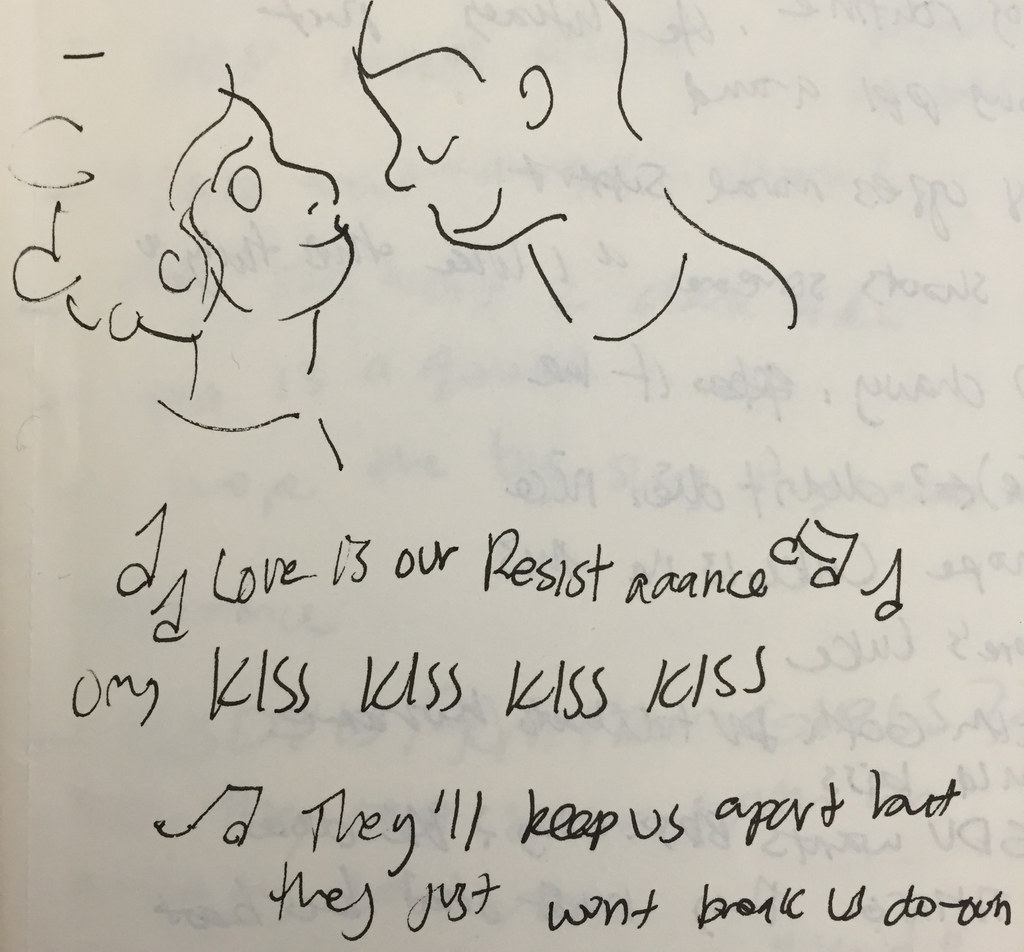 Love is our Resist aaance
omg KISS KISS KISS KISS
They'll keep us apart but
they just wont break us do-own